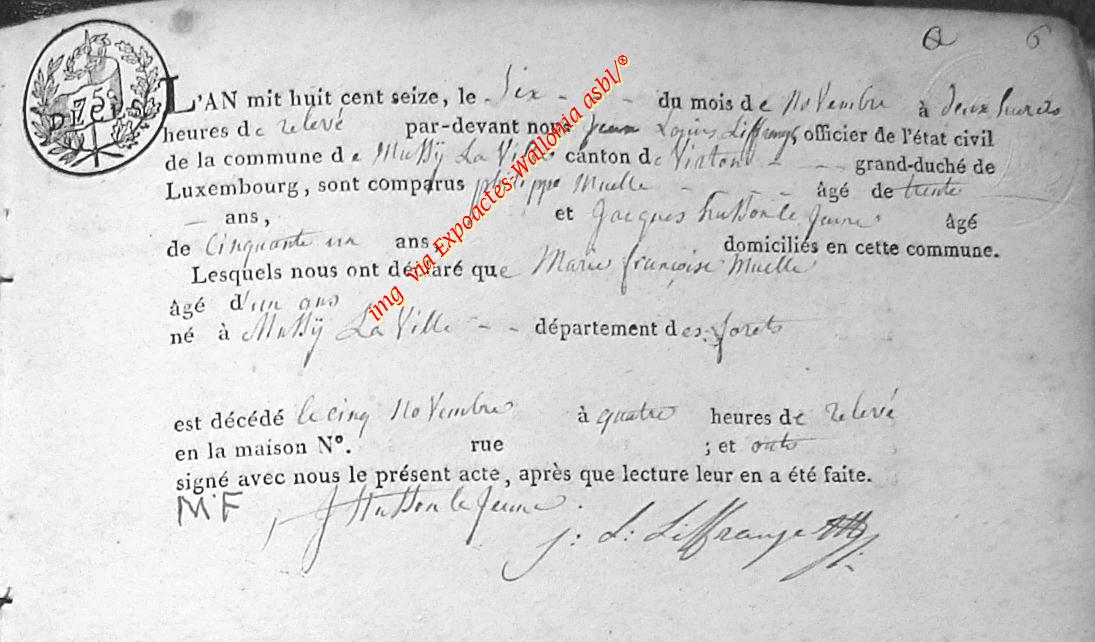 6
L'AN mil huit cent seize, le Six - - - du mois de Novembre à deux heures
heures de relevé par-devant nous Jean Louis Liffrange, officier de l'état civil
de la commune de Mussÿ La Ville canton de Virton - - grand-duché de
Luxembourg, sont comparus philippe Muelle - - - âgé de trente
- ans, et Jacques husson le Jeune âgé
de Cinquante un ans, domiciliés en cette commune.
Lesquels nous ont déclaré que Marie françoise Muelle
âgé d'un ans
né à Mussÿ La Ville - - département des forets
est décédé le cinq Novembre à quatre heures de relevé
en la maison N°. rue ; et onts
signé avec nous le présent acte, après que lecture leur en a été faite.
MF J husson le Jeune.
J: L: Liffrange
img via Expoactes-Wallonia asbl/®